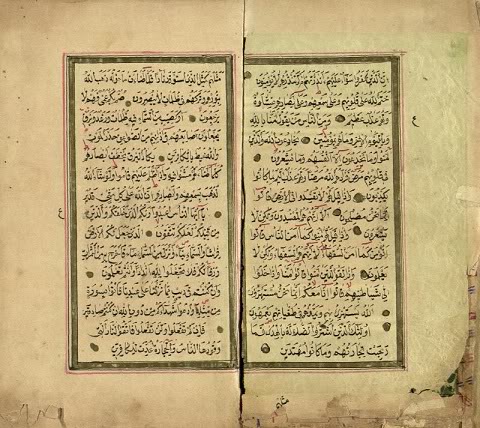 ان الذين كفروا سواء عليهم ءانذرتهم ام لم تنذرهم لا يؤمنون
ختم الله على قلوبهم وعلى سمعهم وعلى ابصارهم غشاوة
ولهم عذاب عظيم ومن الناس من يقول امنا بالله
وباليوم الاخر وما هم بمؤمنين يخادعون الله والذين
امنوا وما يخدعون الا انفسهم وما يشعرون
في قلوبهم مرض فزادهم الله مرضا ولهم عذاب اليم بما كانوا
يكذبون واذا قيل لهم لا تفسدوا في الارض قالوا
انما نحن مصلحون الا انهم هم المفسدون ولكن لا
يشعرون واذا قيل لهم امنوا كما امن الناس قالوا
انؤمن كما امن السفهاء الا انهم هم السفهاء ولكن لا
يعلمون واذا لقوا الذين امنوا قالوا امنا واذا خلوا
الى شياطينهم قالوا انا معكم انما نحن مستهزؤن
الله يستهزئ بهم ويمدهم في طغيانهم يعمهون
اولئك الذين اشتروا الضلالة بالهدى فما
ربحت تجارتهم وما كانوا مهتدين
مثلهم
مثلهم كمثل الذي استوقد نارا فلما اضاءت ما حوله ذهب الله
بنورهم وتركهم في ظلمات لا يبصرون صم بكم عمي فهم لا
يرجعون او كصيب من السماء فيه ظلمات ورعد وبرق
يجعلون اصابعهم في اذانهم من الصواعق حذر الموت
والله محيط بالكافرين يكاد البرق يخطف ابصارهم
كلما اضاء لهم مشوا فيه واذا اظلم عليهم قاموا ولو شاء الله
لذهب بسمعهم وابصارهم ان الله على كل شئ قدير
يا ايها الناس اعبدوا ربكم الذي خلقكم والذين
من قبلكم لعلكم تتقون الذي جعل لكم الارض
فراشا والسماء بناء وانزل من السماء ماء فاخرج به من الثمرات
رزقا لكم فلا تجعلوا لله اندادا وانتم تعلمون
وان كنتم في ريب مما نزلنا على عبدنا فاتوا بسورة
من مثله وادعوا شهداءكم من دون الله ان كنتم صادقين
فان لم تفعلوا ولن تفعلوا فاتقوا النار التي
وقودها الناس والحجارة اعدت للكافرين